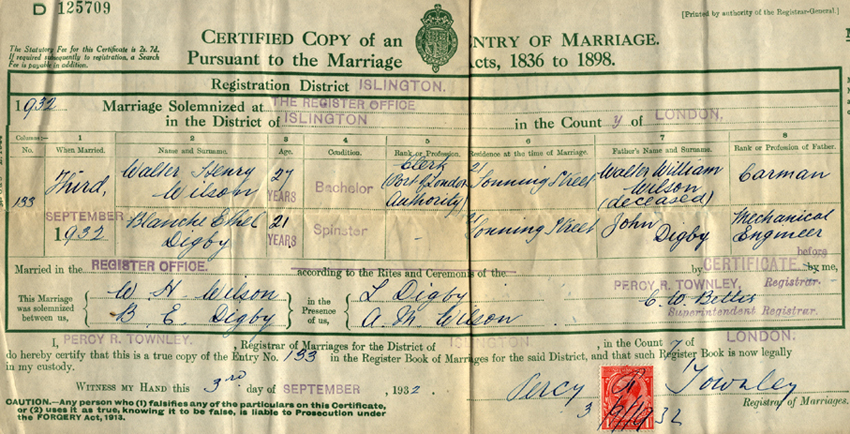 D 125709
[Printed by authority of the Registrar-General.]
CERTIFIED COPY of an ENTRY OF MARRIAGE.
The Statutory Fee for this Certificate is 2s. 7d.
If required subsequently to registration, a Search
Fee is payable in addition.
Pursuant to the Marriage Acts, 1836 to 1898.
Registration District ISLINGTON.
1932 Marriage Solemnized at THE REGISTER OFFICE
in the District of ISLINGTON in the County of LONDON.
Columns:— 1 2 3 4 5 6 7 8
No. When Married. Name and Surname. Age. Condition. Rank or Profession. Residence at the time of Marriage. Father's Name and Surname. Rank or Profession of Father.
133 Third, Walter Henry Wilson 27 YEARS Bachelor Clerk (Port of London Authority) 21 Sonning Street Walter William Wilson (deceased) Carman
SEPTEMBER 1932 Blanche Ethel Digby 21 YEARS Spinster - Sonning Street John Digby Mechanical Engineer
Married in the REGISTER OFFICE. according to the Rites and Ceremonies of the by CERTIFICATE. before by me,
This Marriage was solemnized between us, W. H. Wilson B. E. Digby in the Presence of us, L Digby A. M. Wilson PERCY R. TOWNLEY, Registrar.
C. W. Bettis Superintendent Registrar.
I, PERCY R. TOWNLEY. , Registrar of Marriages for the District of ISLINGTON , in the County of LONDON.
do hereby certify that this is a true copy of the Entry No. 133 in the Register Book of Marriages for the said District, and that such Register Book is now legally
in my custody.
WITNESS MY HAND this 3rd day of SEPTEMBER , 1932.
Percy R Townley
3/9/1932
Registrar of Marriages.
CAUTION.—Any person who (1) falsifies any of the particulars on this Certificate,
or (2) uses it as true, knowing it to be false, is liable to Prosecution under
the FORGERY Act, 1913.